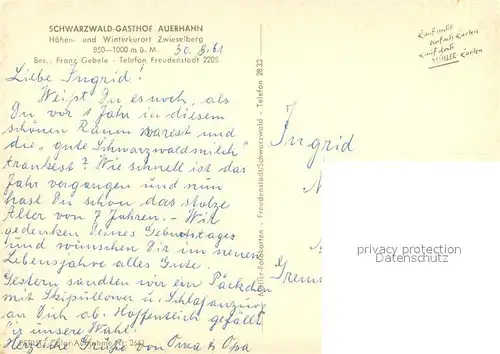 SCHWARZWALD-GASTHOF AUERHAHN
Höhen- und Winterkurort Zwieselberg
850-1000 m ü. M.
Bes.: Franz Gebele - Telefon Freudenstadt 2205
Liebe Ingrid!
Weißt Du es noch, als
Du vor 1 Jahr in diesem
schönen Raum warest und
die "gute Schwarzwaldmilch"
trankest? Wie schnell ist das
Jahr vergangen und nun
hast Du schon das stolze
Alter von 7 Jahren. - Wir
gedenken Deines Geburtstages
und wünschen Dir im neuen
Lebensjahre alles Gute.
Gestern sandten wir ein Päckchen
mit Skipullower u. Schlafanzug
an Dich ab. Hoffentlich gefällt
Dir unsere Wahl.
Herzliche Grüße von Oma & Opa
Müller-Fotokarten - Freudenstadt/Schwarzwald - Telefon 2833
Kauf nicht
einfach Karten
Kauf doch
MÜLLER-Karten
Ingrid
privacy protection
www.ansichtskartenversand.com